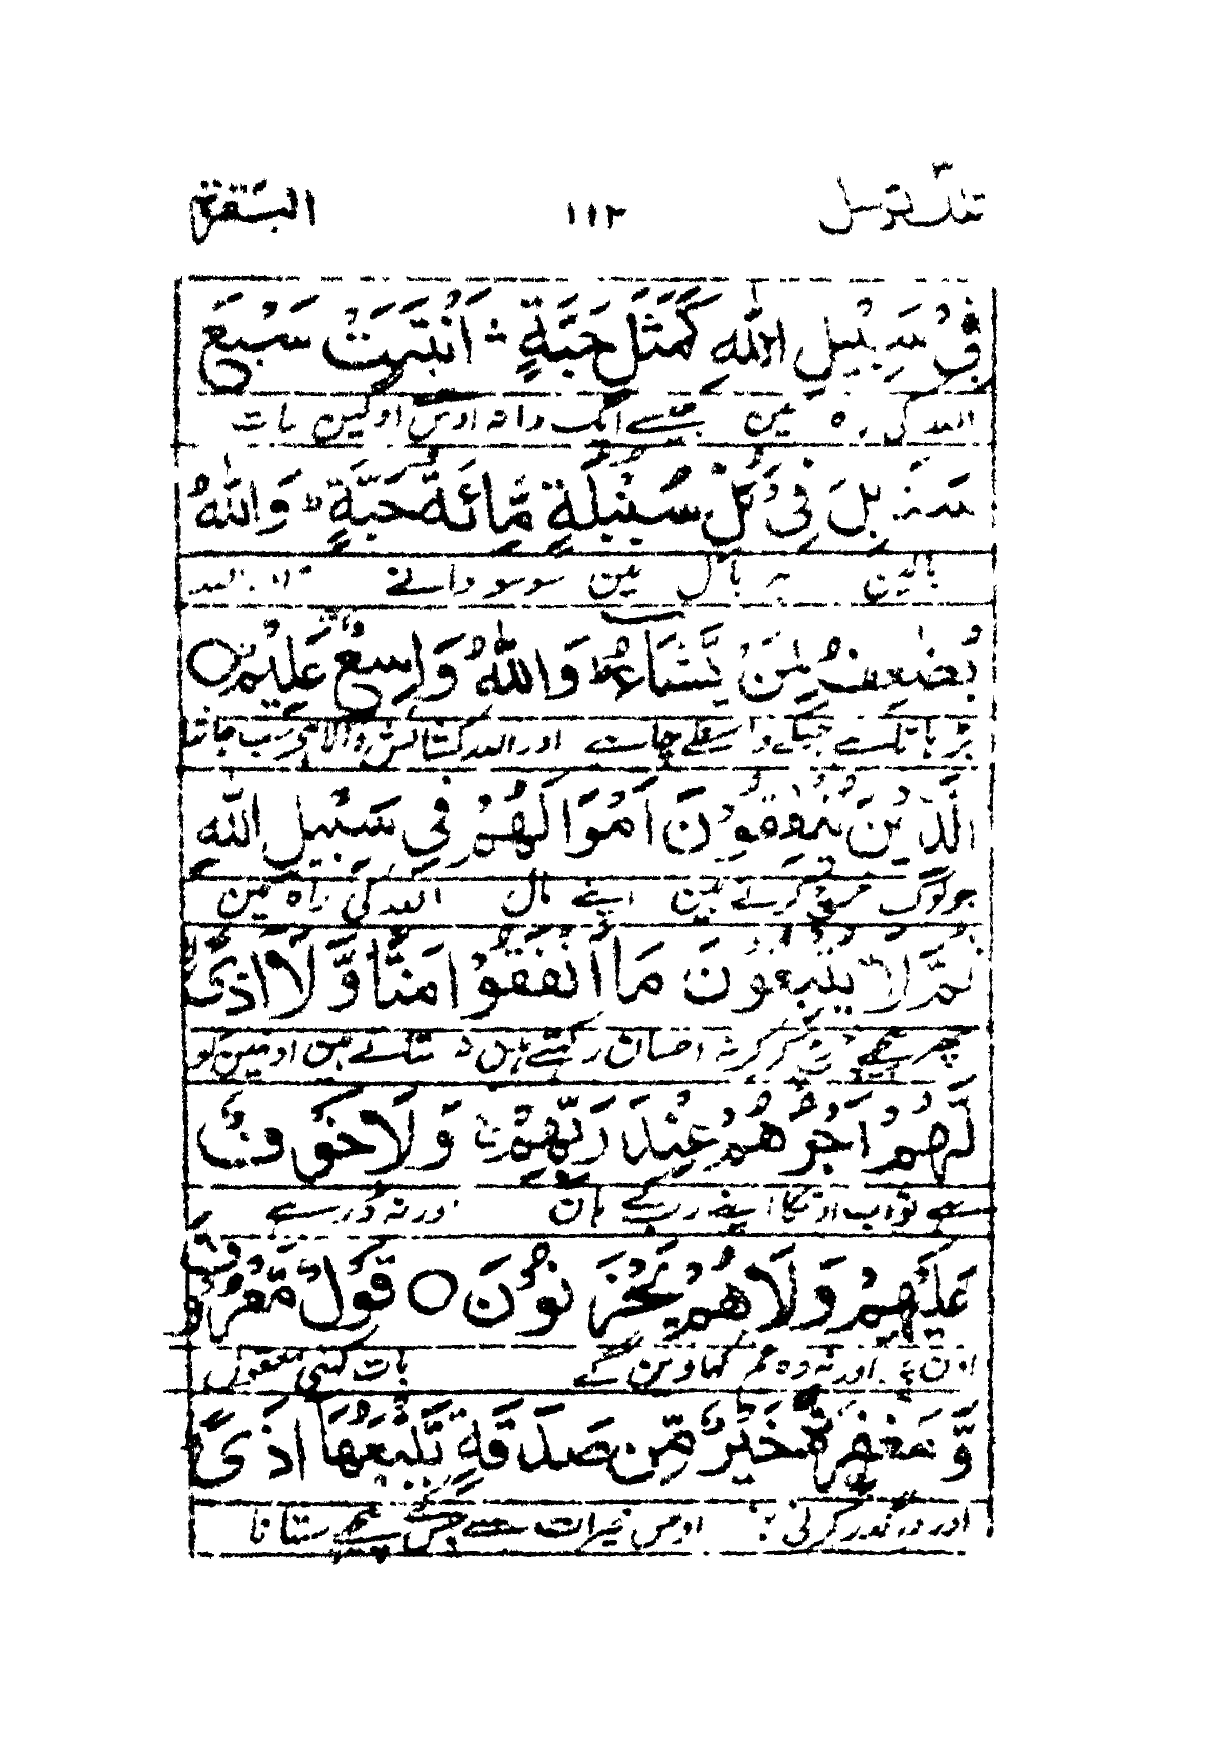 تلك الرسل ١١٢ البقرة
فِیْ سَبِیْلِ اللّٰهِ كَمَثَلِ حَبَّةٍ اَنْۢبَتَتْ سَبْعَ
اللہ کی راہ میں جیسے ایک دانہ اوس اوگین سات
سَنَابِلَ فِیْ كُلِّ سُنْۢبُلَةٍ مِّائَةُ حَبَّةٍ ؕ وَاللّٰهُ
بالین ہر بال مین سو سو دانے اور اللہ
یُضٰعِفُ لِمَنْ یَّشَآءُ ؕ وَاللّٰهُ وَاسِعٌ عَلِیْمٌ ○
بڑہاتا ہے جسکے واسطے چاہے اور اللہ کشائش والا ہے سب جانتا
اَلَّذِیْنَ یُنْفِقُوْنَ اَمْوَالَهُمْ فِیْ سَبِیْلِ اللّٰهِ
جو لوگ خرچ کرتے ہین اپنے مال اللہ کی راہ مین
ثُمَّ لَا یُتْبِعُوْنَ مَاۤ اَنْفَقُوْا مَنًّا وَّلَاۤ اَذًی
پھر پیچھے خرچ کر کر نہ احسان رکھتے ہین نہ ستاتے ہین اونہین کو
لَّهُمْ اَجْرُهُمْ عِنْدَ رَبِّهِمْ ۚ وَلَا خَوْفٌ
ہے ثواب اونکا اپنے رب کے ہان اور نہ ڈر ہے
عَلَیْهِمْ وَلَا هُمْ یَحْزَنُوْنَ ○ قَوْلٌ مَّعْرُوْفٌ
اون پر اور نہ وہ غم کھاوین گے بات کہنی معقول
وَّمَغْفِرَةٌ خَیْرٌ مِّنْ صَدَقَةٍ یَّتْبَعُهَاۤ اَذًی
اور درگذر کرنی اوس خیرات سے جس کے پیچھے ستانا